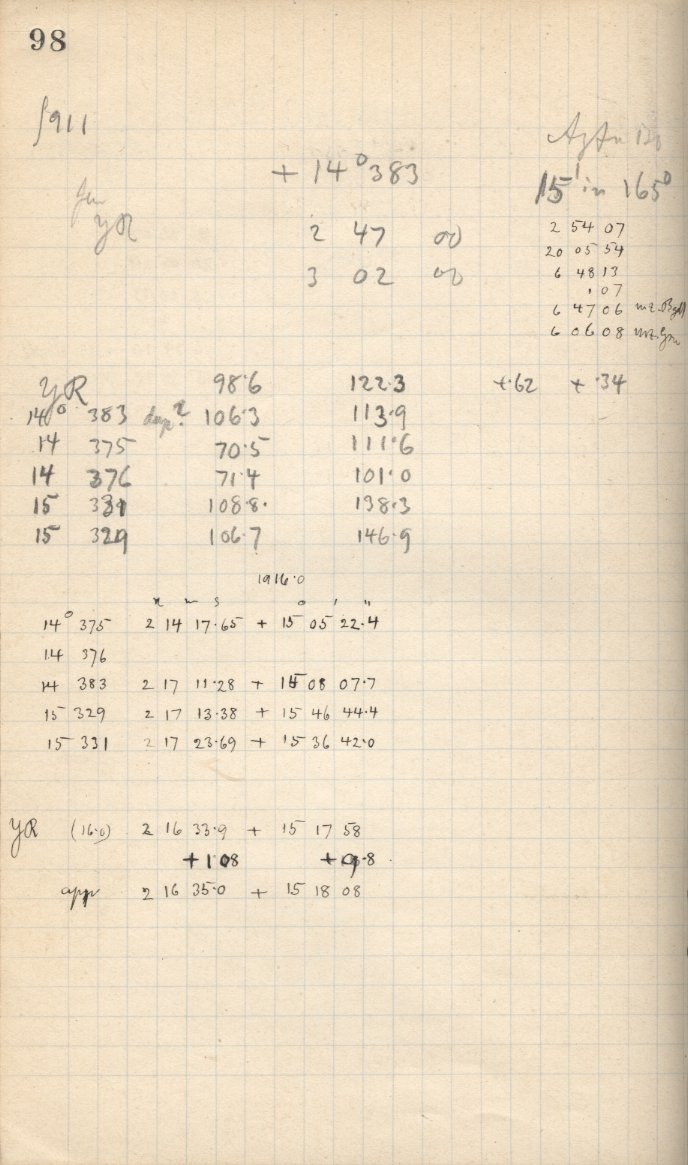 98
1911
+ 14° 383
15' in 165°
YR
2 47 00
3 02 00
2 54 07
20 05 54
6 48 13
, 07
6 47 06
6 06 08
YR 98.6 122.3 +.62 + .34
14° 383 dup? 106.3 113.9
14 375 70.5 111.6
14 376 71.4 101.0
15 331 108.8. 138.3
15 329 106.7 146.9
1916.0
h m s ° ' "
14° 375 2 14 17.65 + 15 05 22.4
14 376
14 383 2 17 11.28 + 15 08 07.7
15 329 2 17 13.38 + 15 46 44.4
15 331 2 17 23.69 + 15 36 42.0
YR (16.0) 2 16 33.9 + 15 17 58
+1.08 +9.8
app 2 16 35.0 + 15 18 08